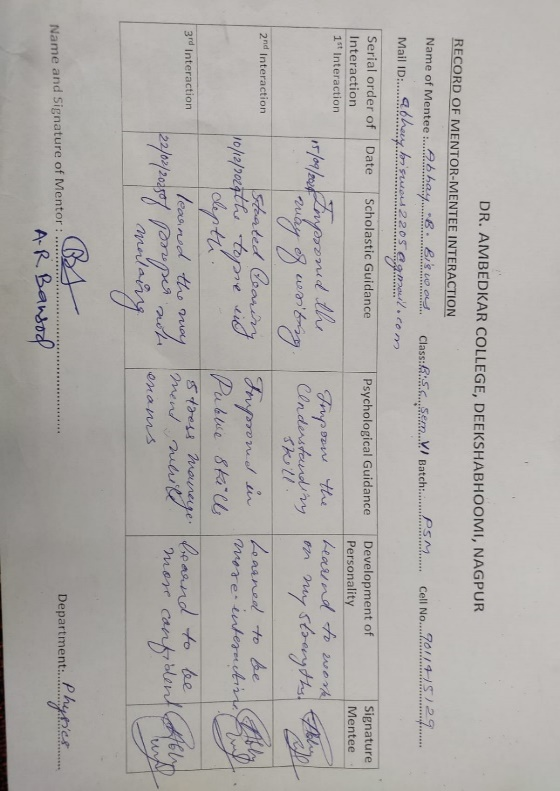 DR. AMBEDKAR COLLEGE, DEEKSHABHOOMI, NAGPUR
RECORD OF MENTOR-MENTEE INTERACTION
Name of Mentee :. Abhay .B. Biswas Class: B.Sc. Sem VI Batch: PSM Cell No.
Mail ID:. abhaybiswas2205@gmail.com
Serial order of Interaction Date Scholastic Guidance Psychological Guidance Development of Personality Signature Mentee
1st Interaction Improved the way of writing. Improve the Understanding skill. Learnd to work on my strengths.
2nd Interaction Started learning the topic in depth. Improved in Public skills Learned to be more interactive.
3rd Interaction learned the way of paragraph Stress manage- ment exams Learnd to be more confident
Name and Signature of Mentor : A.R. Department: Physics